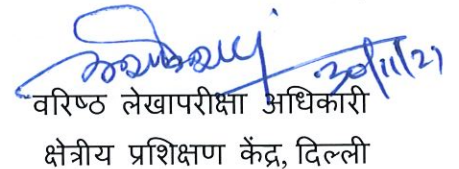 30/11/21
वरिष्ठ लेखापरीक्षा अधिकारी
क्षेत्रीय प्रशिक्षण केंद्र, दिल्ली